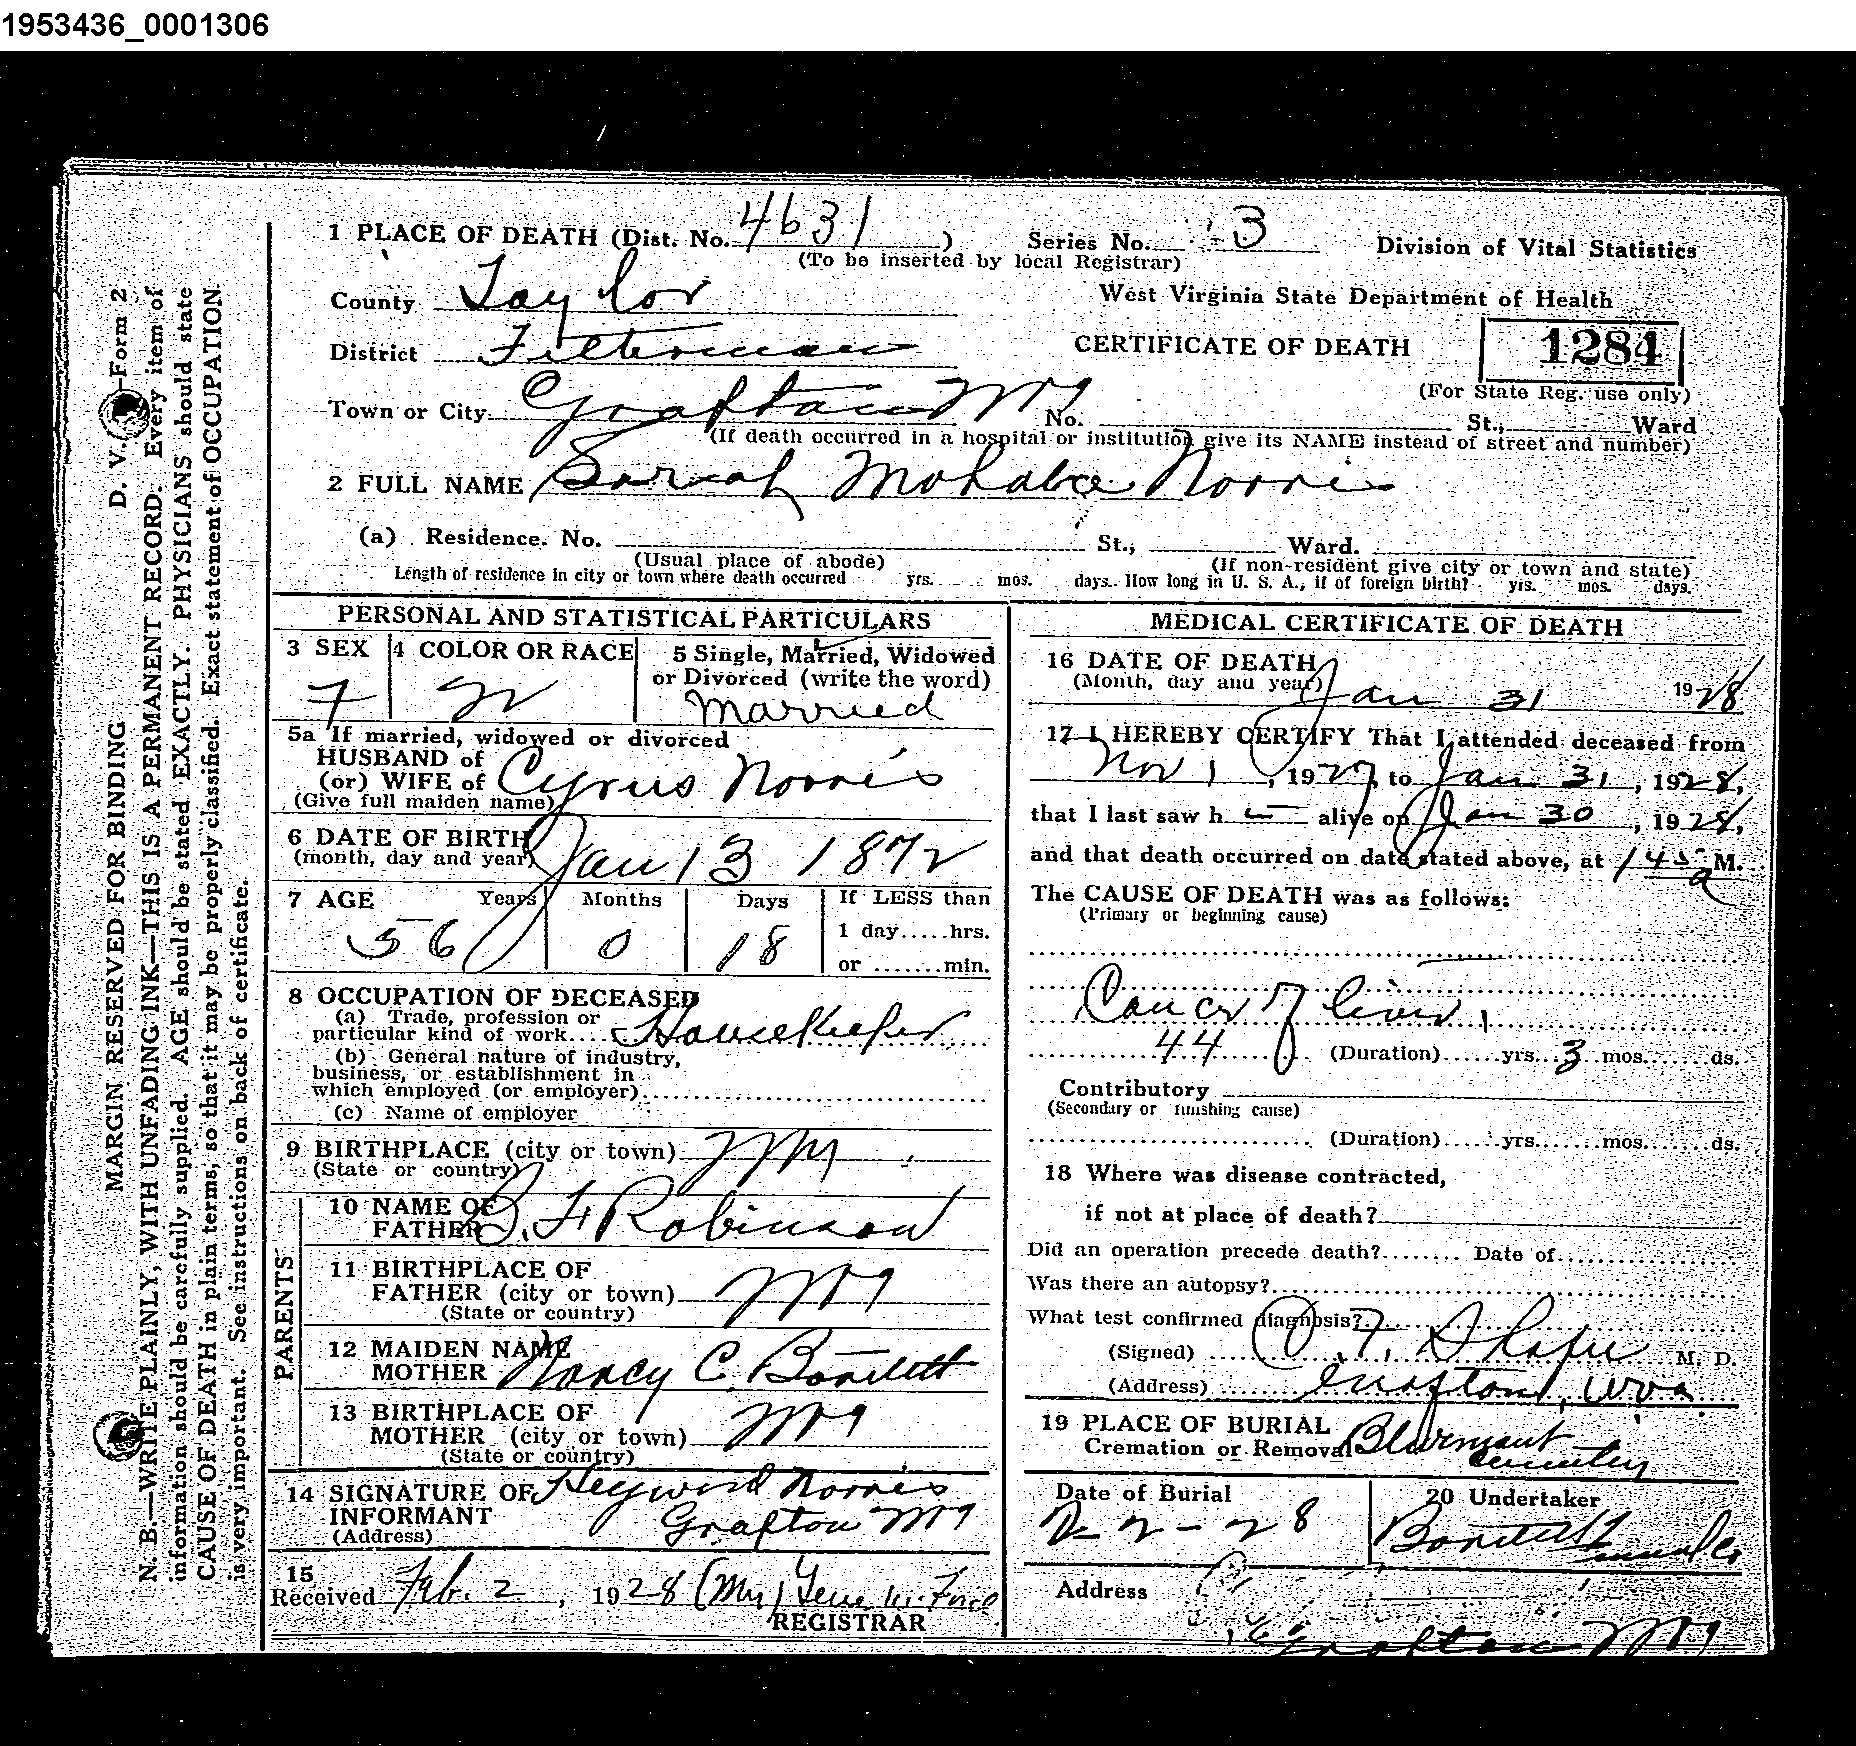 1953436_0001306
1 PLACE OF DEATH (Dist. No. 4631 ) Series No. 3 Division of Vital Statistics
(To be inserted by local Registrar)
County Taylor West Virginia State Department of Health
District Fetterman CERTIFICATE OF DEATH 1284
(For State Reg. use only)
Town or City Grafton No. St., Ward
(If death occurred in a hospital or institution give its NAME instead of street and number)
2 FULL NAME Sarah Norris
(a) Residence. No. St., Ward.
(Usual place of abode) (If non-resident give city or town and state)
Length of residence in city or town where death occurred yrs. mos. days. How long in U. S. A., if of foreign birth? yrs. mos. days.
PERSONAL AND STATISTICAL PARTICULARS
3 SEX 4 COLOR OR RACE 5 Single, Married, Widowed
or Divorced (write the word)
F W Married
5a If married, widowed or divorced
HUSBAND of
(or) WIFE of Cyrus Norris
(Give full maiden name)
6 DATE OF BIRTH
(month, day and year) Jan 13 1872
7 AGE Years Months Days If LESS than
1 day.....hrs.
56 0 18
or .......min.
8 OCCUPATION OF DECEASED
(a) Trade, profession or
particular kind of work.... Housekeeper
(b) General nature of industry,
business, or establishment in
which employed (or employer)
(c) Name of employer
9 BIRTHPLACE (city or town)
(State or country)
PARENTS
10 NAME OF
FATHER B. F Robinson
11 BIRTHPLACE OF
FATHER (city or town)
(State or country)
12 MAIDEN NAME
MOTHER Nancy C.
13 BIRTHPLACE OF
MOTHER (city or town)
(State or country)
14 SIGNATURE OF Heyward Norris
INFORMANT Grafton
(Address)
15
Received Feb. 2, 1928
REGISTRAR
MEDICAL CERTIFICATE OF DEATH
16 DATE OF DEATH
(Month, day and year) Jan 31 1928
17 I HEREBY CERTIFY That I attended deceased from
Nov 1, 1927, to Jan 31, 1928,
that I last saw h alive on Jan 30, 1928,
and that death occurred on date stated above, at 145 a M.
The CAUSE OF DEATH was as follows:
(Primary or beginning cause)
Cancer of liver,
44 (Duration)......yrs. 3 mos.......ds.
Contributory
(Secondary or finishing cause)
(Duration)......yrs.......mos.......ds.
18 Where was disease contracted,
if not at place of death?
Did an operation precede death?........ Date of
Was there an autopsy?
What test confirmed diagnosis?
(Signed) M. D.
(Address) Grafton, W Va
19 PLACE OF BURIAL
Cremation or Removal Bluemont
Cemetery
Date of Burial 20 Undertaker
2-2-28
Address
Grafton
D. V. Form 2
MARGIN RESERVED FOR BINDING
N. B.—WRITE PLAINLY, WITH UNFADING INK—THIS IS A PERMANENT RECORD. Every item of
information should be carefully supplied. AGE should be stated EXACTLY. PHYSICIANS should state
CAUSE OF DEATH in plain terms, so that it may be properly classified. Exact statement of OCCUPATION
is very important. See instructions on back of certificate.